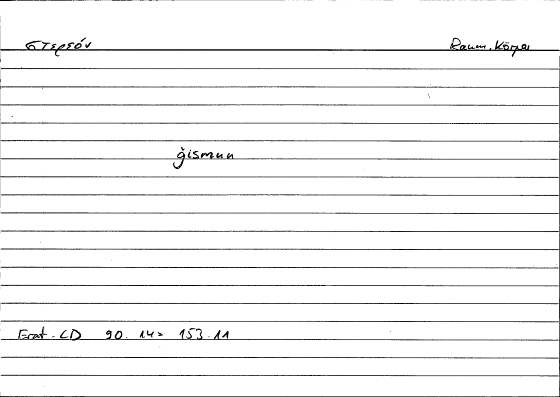 στερεόν Raum. Körper
ǧismun
Erat. CD 90.14 = 153.11